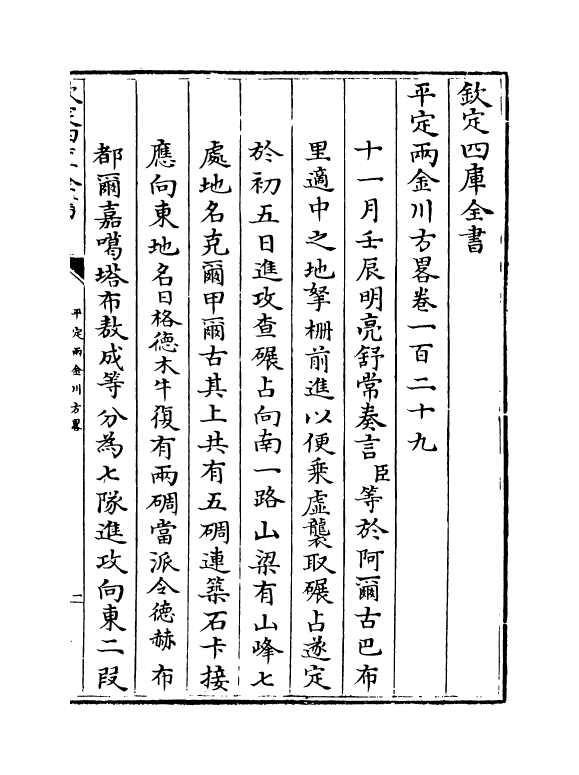 欽定四庫全書
平定兩金川方畧卷一百二十九
十一月壬辰明亮舒常奏言臣等於阿爾古巴布
里適中之地拏栅前進以便乘虛襲取碾占遂定
於初五日進攻查碾占向南一路山梁有山峰七
處地名克爾甲爾古其上共有五碉連築石卡接
應向東地名日格德木牛復有兩碉當派令德赫布
都爾嘉噶塔布敖成等分為七隊進攻向東二段
平定兩金川方畧
二